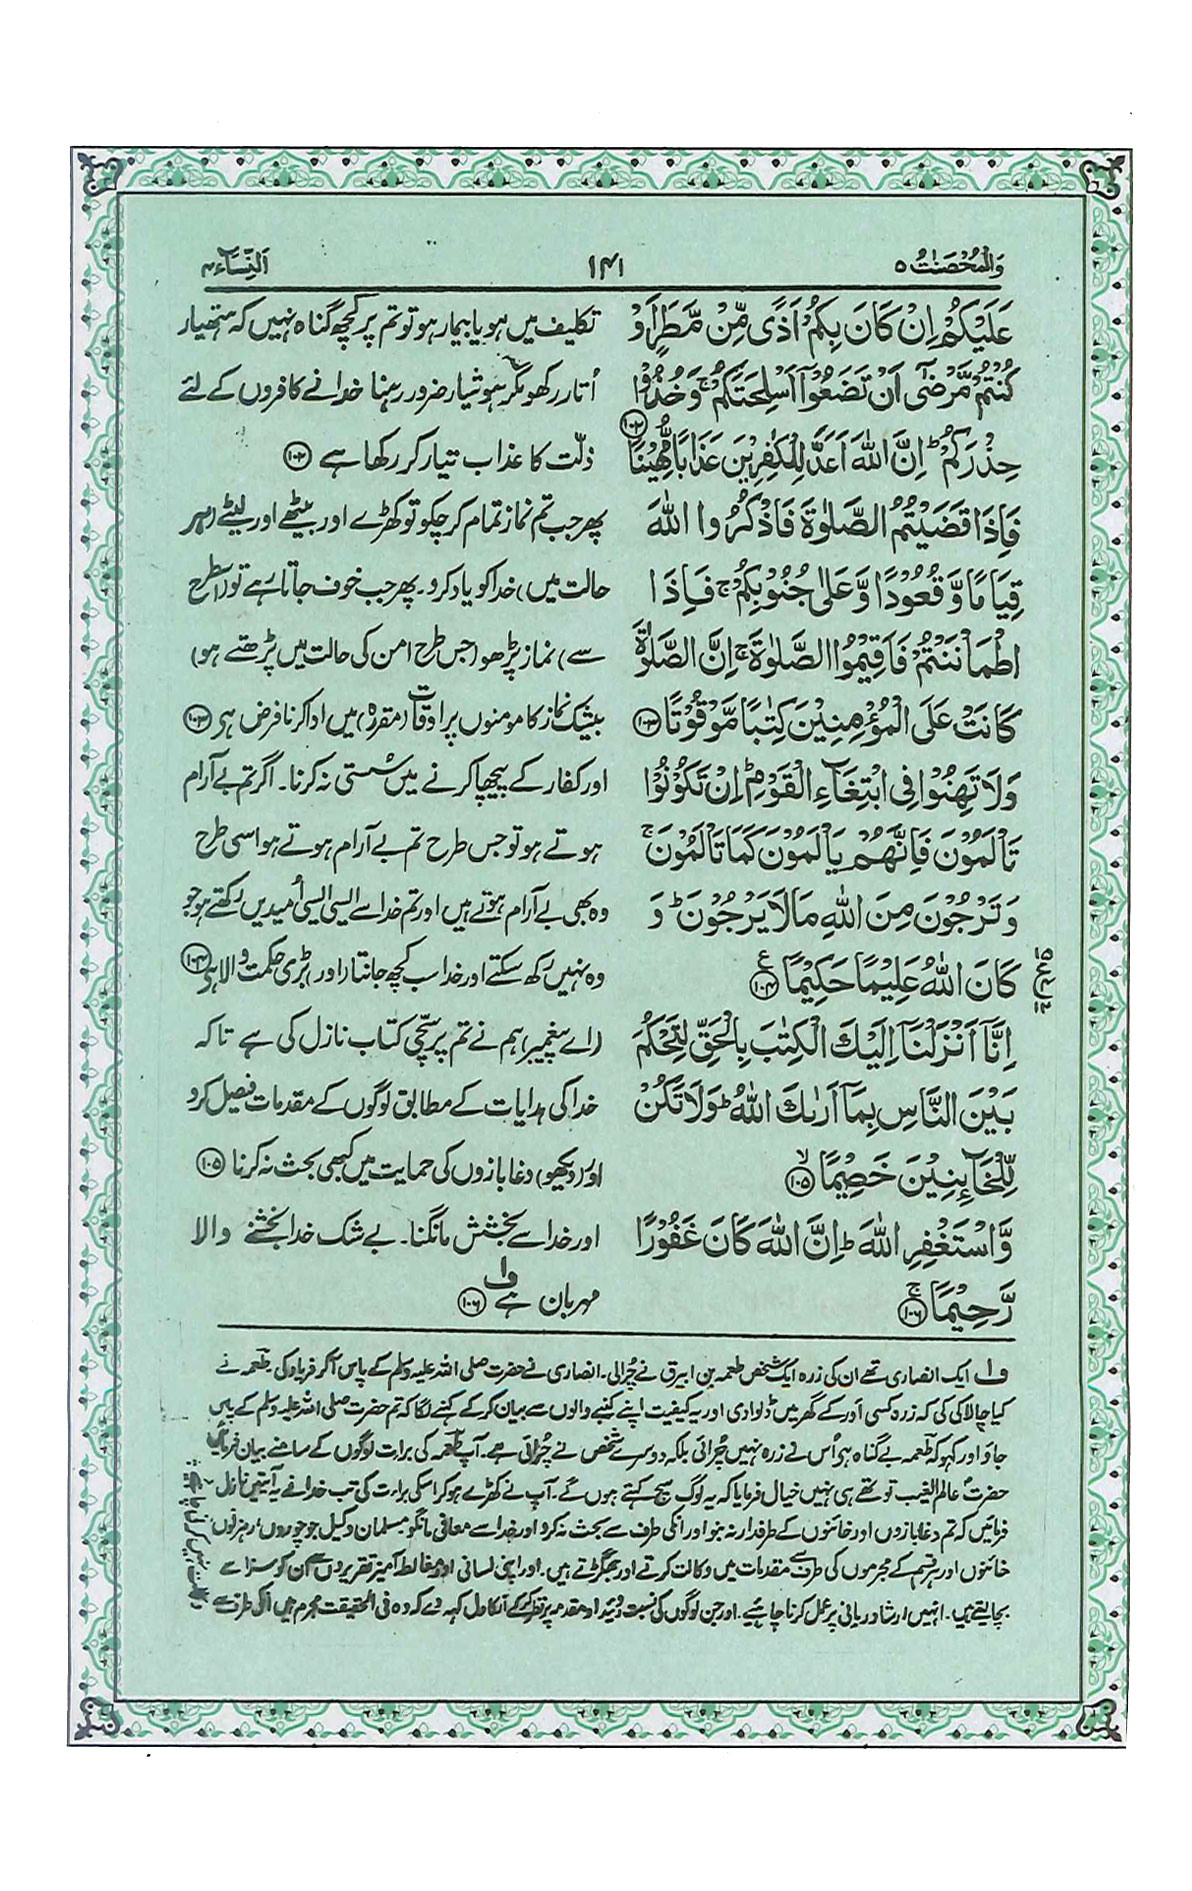 وَالْمُحْصَنٰتُ ۵
۱۴۱
اَلنِّسَآء ۴
عَلَيْكُمْ اِنْ كَانَ بِكُمْ اَذًى مِّنْ مَّطَرٍ اَوْ
كُنْتُمْ مَّرْضٰٓى اَنْ تَضَعُوْٓا اَسْلِحَتَكُمْ ۚ وَخُذُوْا
حِذْرَكُمْ ؕ اِنَّ اللّٰهَ اَعَدَّ لِلْكٰفِرِيْنَ عَذَابًا مُّهِيْنًا ۝۱۰۲
فَاِذَا قَضَيْتُمُ الصَّلٰوةَ فَاذْكُرُوا اللّٰهَ
قِيَامًا وَّقُعُوْدًا وَّعَلٰى جُنُوْبِكُمْ ۚ فَاِذَا
اطْمَاْنَنْتُمْ فَاَقِيْمُوا الصَّلٰوةَ ۚ اِنَّ الصَّلٰوةَ
كَانَتْ عَلَى الْمُؤْمِنِيْنَ كِتٰبًا مَّوْقُوْتًا ۝۱۰۳
وَلَا تَهِنُوْا فِى ابْتِغَآءِ الْقَوْمِ ؕ اِنْ تَكُوْنُوْا
تَاْلَمُوْنَ فَاِنَّهُمْ يَاْلَمُوْنَ كَمَا تَاْلَمُوْنَ ۚ
وَتَرْجُوْنَ مِنَ اللّٰهِ مَا لَا يَرْجُوْنَ ؕ وَ
كَانَ اللّٰهُ عَلِيْمًا حَكِيْمًا ۝۱۰۴ ع
اِنَّآ اَنْزَلْنَآ اِلَيْكَ الْكِتٰبَ بِالْحَقِّ لِتَحْكُمَ
بَيْنَ النَّاسِ بِمَآ اَرٰىكَ اللّٰهُ ؕ وَلَا تَكُنْ
لِّلْخَآئِنِيْنَ خَصِيْمًا ۝۱۰۵ ۙ
وَّاسْتَغْفِرِ اللّٰهَ ؕ اِنَّ اللّٰهَ كَانَ غَفُوْرًا
رَّحِيْمًا ۝۱۰۶ ۚ
تکلیف میں ہو یا بیمار ہو تو تم پر کچھ گناہ نہیں کہ ہتھیار
اُتار رکھو مگر ہوشیار ضرور رہنا خدا نے کافروں کے لئے
ذلّت کا عذاب تیار کر رکھا ہے ۝۱۰۲
پھر جب تم نماز تمام کر چکو تو کھڑے اور بیٹھے اور لیٹے (ہر
حالت میں) خدا کو یاد کرو۔ پھر جب خوف جاتا رہے تو (اس طرح
سے) نماز پڑھو (جس طرح امن کی حالت میں پڑھتے ہو)
بیشک نماز کا مومنوں پر اوقات (مقررہ) میں ادا کرنا فرض ہے ۝۱۰۳
اور کفار کے پیچھا کرنے میں سُستی نہ کرنا۔ اگر تم بے آرام
ہوتے ہو تو جس طرح تم بے آرام ہوتے ہو اسی طرح
وہ بھی بے آرام ہوتے ہیں اور تم خدا سے ایسی ایسی اُمیدیں رکھتے ہو جو
وہ نہیں رکھ سکتے اور خدا سب کچھ جانتا اور بڑی حکمت والا ہے ۝۱۰۴
(اے پیغمبر) ہم نے تم پر سچّی کتاب نازل کی ہے تاکہ
خدا کی ہدایات کے مطابق لوگوں کے مقدمات فیصل کرو
اور (دیکھو) دغابازوں کی حمایت میں کبھی بحث نہ کرنا ۝۱۰۵
اور خدا سے بخشش مانگنا۔ بے شک خدا بخشنے والا
مہربان ہے ۝۱۰۶ ف۱
ف۱ ایک انصاری تھے ان کی زرہ ایک شخص طعمہ بن ابیرق نے چُرا لی۔ انصاری نے حضرت صلی اللہ علیہ وسلم کے پاس آکر فریاد کی طعمہ نے
کیا چالاکی کی کہ زرہ کسی اور کے گھر میں ڈلوا دی اور یہ کیفیت اپنے کنبے والوں سے بیان کر کے کہنے لگا کہ تم حضرت صلی اللہ علیہ وسلم کے پاس
جاؤ اور کہو کہ طعمہ بے گناہ ہے اُس نے زرہ نہیں چرائی بلکہ دوسرے شخص نے چُرائی ہے۔ آپ طعمہ کی برات لوگوں کے سامنے بیان فرمائیے
حضرت عالم الغیب تو تھے ہی نہیں خیال فرمایا کہ یہ لوگ سچ کہتے ہوں گے۔ آپ نے کھڑے ہو کر اسکی براءت کی تب خدا نے یہ آیتیں نازل
فرمائیں کہ تم دغابازوں اور خائنوں کے طرفدار نہ بنو اور انکی طرف سے بحث نہ کرو اور خدا سے معافی مانگو۔ مسلمان وکیل جو چوروں، رہزنوں
خائنوں اور ہر قسم کے مجرموں کی طرف سے مقدمات میں وکالت کرتے اور جھگڑتے ہیں۔ اور اپنی لسانی اور مغالطہ آمیز تقریروں سے اُن کو سزا سے
بچا لیتے ہیں۔ انہیں ارشاد ربانی پر عمل کرنا چاہیے۔ اور جن لوگوں کی نسبت روئیداد مقدمہ پر نظر کر کے انکا دل کہہ دے کہ وہ فی الحقیقت مجرم ہیں انکی طرف سے
وکالت نہیں کرنی چاہیئے